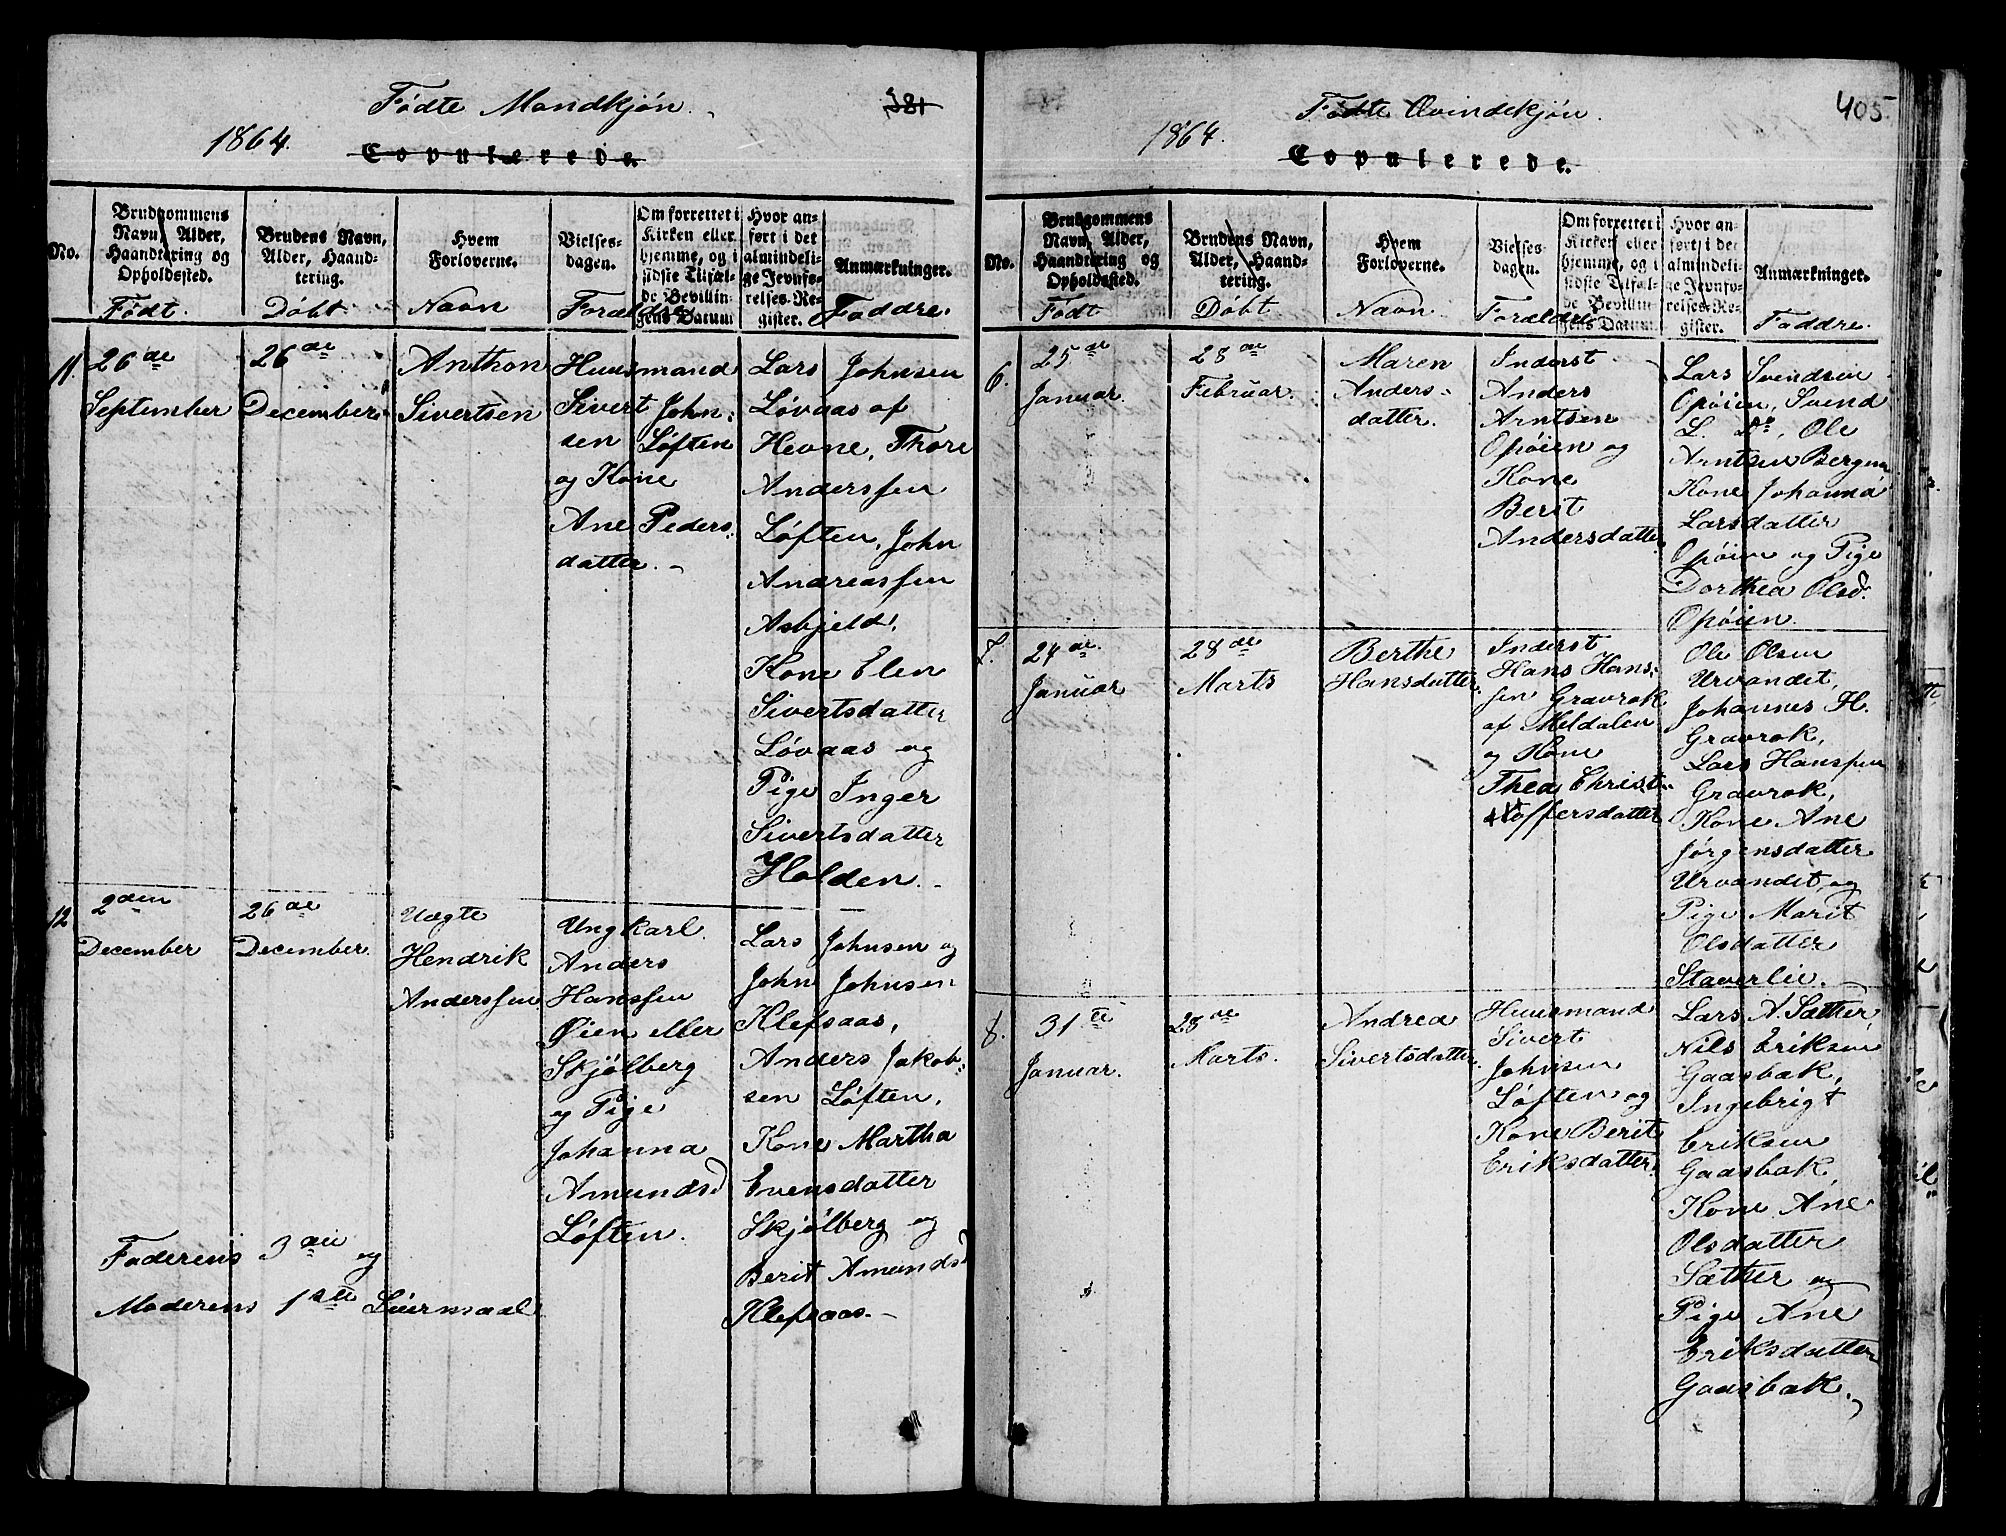 Fødte Mandkjøn.
381
1864.
Copulerede.
No.
Brudgommens Navn, Alder, Haandtering og Opholdssted.
Brudens Navn, Alder, Haandtering.
Hvem Forloverne.
Vielsesdagen.
Om forrettet i Kirken eller hjemme, og i sidste Tilfælde Bevillingens Datum
Hvor anført i det almindelige Jevnførelses-Register.
Anmærkninger.
Født.
Døbt
Navn
Forældre
Faddre.
11.
26de
September
26de
December
Anthon
Sivertsen
Huusmand
Sivert John-
sen Løften
og Kone
Ane Peders-
datter.
Lars Johnsen
Løvaas af
Hevne, Thore
Anderssen
Løften, John
Andreassen
Asbjeld,
Kone Elen
Sivertsdatter
Løvaas og
Pige Inger
Sivertsdatter
Holden.
12
2den
December
26de
December.
Uægte
Hendrik
Anderssen
Ungkarl
Anders
Hanssen
Øien eller
Skjølberg
og Pige
Johanna
Amundsd
Løften.
Lars Johnsen og
John Johnsen
Klefsaas,
Anders Jakob-
sen Løften,
Kone Martha
Evensdatter
Skjølberg og
Berit Amundsd
Klefsaas.
Faderens 3die og
Moderens 1ste Leiermaal
Fødte Qvindekjøn.
405
1864.
Copulerede.
No.
Brudgommens Navn, Alder, Haandtering og Opholdssted.
Brudens Navn, Alder, Haandtering.
Hvem Forloverne.
Vielsesdagen.
Om forrettet i Kirken eller hjemme, og i sidste Tilfælde Bevillingens Datum.
Hvor anført i det almindelige Jevnførelses-Register.
Anmærkninger.
Født
Døbt
Navn
Forældre
Faddre.
6.
25de
Januar.
28de
Februar.
Maren
Anders-
datter.
Inderst
Anders
Arntsen
Opøien og
Kone
Berit
Andersdatter
Lars Svendsen
Opøien, Svend
L. Do, Ole
Arntsen Bergem
Kone Johanna
Larsdatter
Opøien og Pige
Dorthea Olsd.
Opøien.
7.
24de
Januar
28de
Marts
Berthe
Hansdatter.
Inderst
Hans Hans-
sen Gravrok
af Meldalen
og Kone
Thea Christ-
offersdatter
Ole Olsen
Urvandet
Johannes H.
Gravrok,
Lars Hanssen
Gravrok,
Kone Ane
Jørgensdatter
Urvandet og
Pige Marit
Olsdatter
Staverlie.
8.
31te
Januar.
28de
Marts.
Andrea
Sivertsdatter.
Huusmand
Sivert
Johnsen
Løften og
Kone Berit
Eriksdatter.
Lars A. Sæther,
Nils Eriksen
Gaasbak,
Ingebrigt
Eriksen
Gaasbak,
Kone Ane
Olsdatter
Sæther og
Pige Ane
Eriksdatter
Gaasbak.